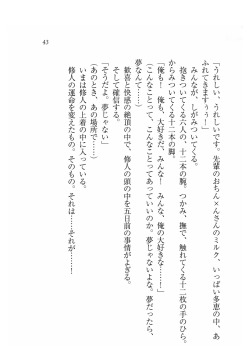 43
「うれしい、うれしいです。先輩のおちん×んさんのミルク、いっぱい多恵の中、あ
ふれてきますぅぅー！」
みんなが、しがみついてくる。
抱きついてくる六人の、十二本の腕。つかみ、撫で、触れてくる十二枚の手のひら。
からみついてくる十二本の脚。
「俺も！　俺も、大好きだ、みんな！　みんな、俺の大好きな……！」
（こんなことって、こんなことってあっていいのか。夢じゃないよな。夢だったら、
夢ななくて……）
歓喜と快感の絶頂の中で、修人の頭の中を五日前の事情がよぎる。
そして確信する。
「そうだよ。夢じゃない」
（あのとき、あの場所で……）
いまは修人の上着の中に入っている。
修人の運命を変えたもの、そのもの。それは……それが……！